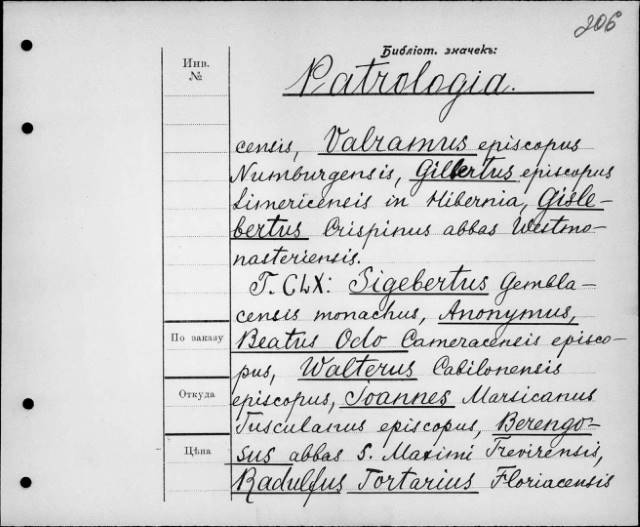 206
Библіот. значекъ:
Инв.
№
Patrologia.
censis, Valramus episcopus
Numburgensis, Gilbertus episcopus
Limericensis in Hibernia, Gisle-
bertus Crispinus abbas Westmo-
nasteriensis.
T. CLX: Sigebertus Gembla-
censis monachus, Anonymus,
По заказу
Beatus Odo Cameracensis episco-
pus, Walterus Cabilonensis
Откуда
episcopus, Joannes Marsicanus
Tusculanus episcopus, Berengo-
Цѣна
sus abbas S. Maximi Trevirensis,
Radulfus Tortarius Floriacensis